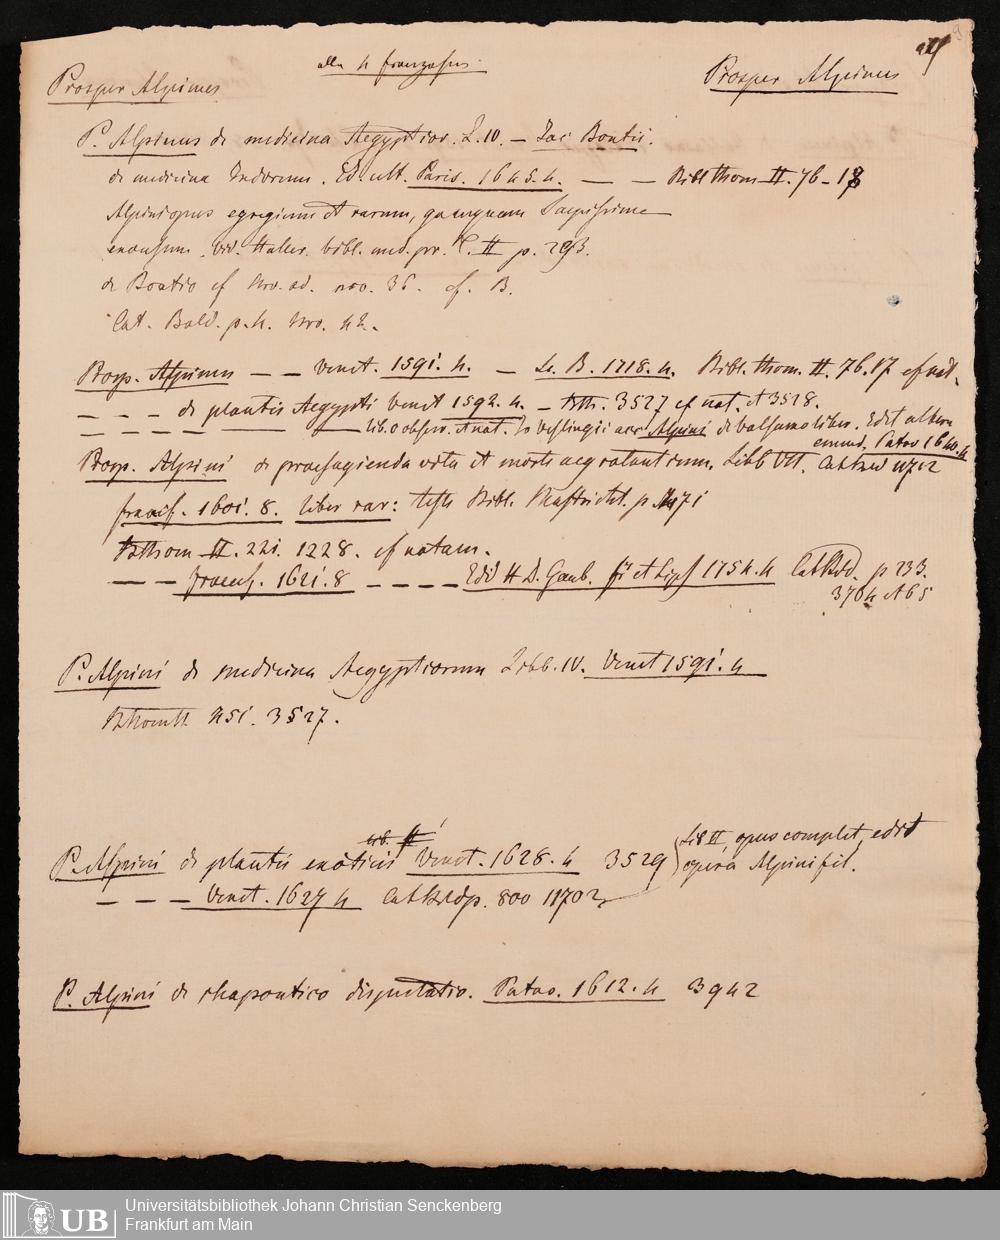 Prosper Alpinus
Prosper Alpinus
P. Alpinus de medicina Aegyptior. L. IV. — Jac Bontii.
de medicina Indorum. Ed. ult. Paris. 1645. 4. — — Bibl thom II. 76-18
Alpini opus egregium et rarum, quanquam saepissime
excusum. vid. Haller. bibl. med. pr. T. II p. 293.
de Bontio cf Nro. ad. nro. 36. cf. B.
Cat. Bald. p. 4. Nro. 42.
Prosp. Alpinus — — Venet. 1591. 4. — L. B. 1718. 4. Bibl. thom. II. 76. 17 cf not.
— — — de plantis Aegypti Venet 1592. 4. — 3527 cf not. et 3528.
— — — — lib. c observ. et not. Jo Veslingii acc Alpini de balsamo liber. Edit altera
emend. Patav 1640. 4
Prosp. Alpini de praesagienda vita et morte aegrotantium. Libb VII.
francf. 1601. 8. liber rar: teste Bibl. Mastricht. p. 471
Bthom II. 221. 1228. cf notam.
— — francf. 1621. 8 — — — — Edid H D. Gaub. 1754. 4 Cat Bld. p 233.
3764 et 65
P. Alpini de medicina Aegyptiorum Libb. IV. Venet 1591. 4
Bthom II. 451. 3527.
lib. II
P. Alpini de plantis exoticis Venet. 1628. 4 3529
Lib II, opus complet, edit
opera Alpini fil.
— — — Venet. 1627 4 Cat Bld p. 800 11702
P. Alpini de rhapontico disputatio. Patav. 1612. 4 3942
UB
Universitätsbibliothek Johann Christian Senckenberg
Frankfurt am Main